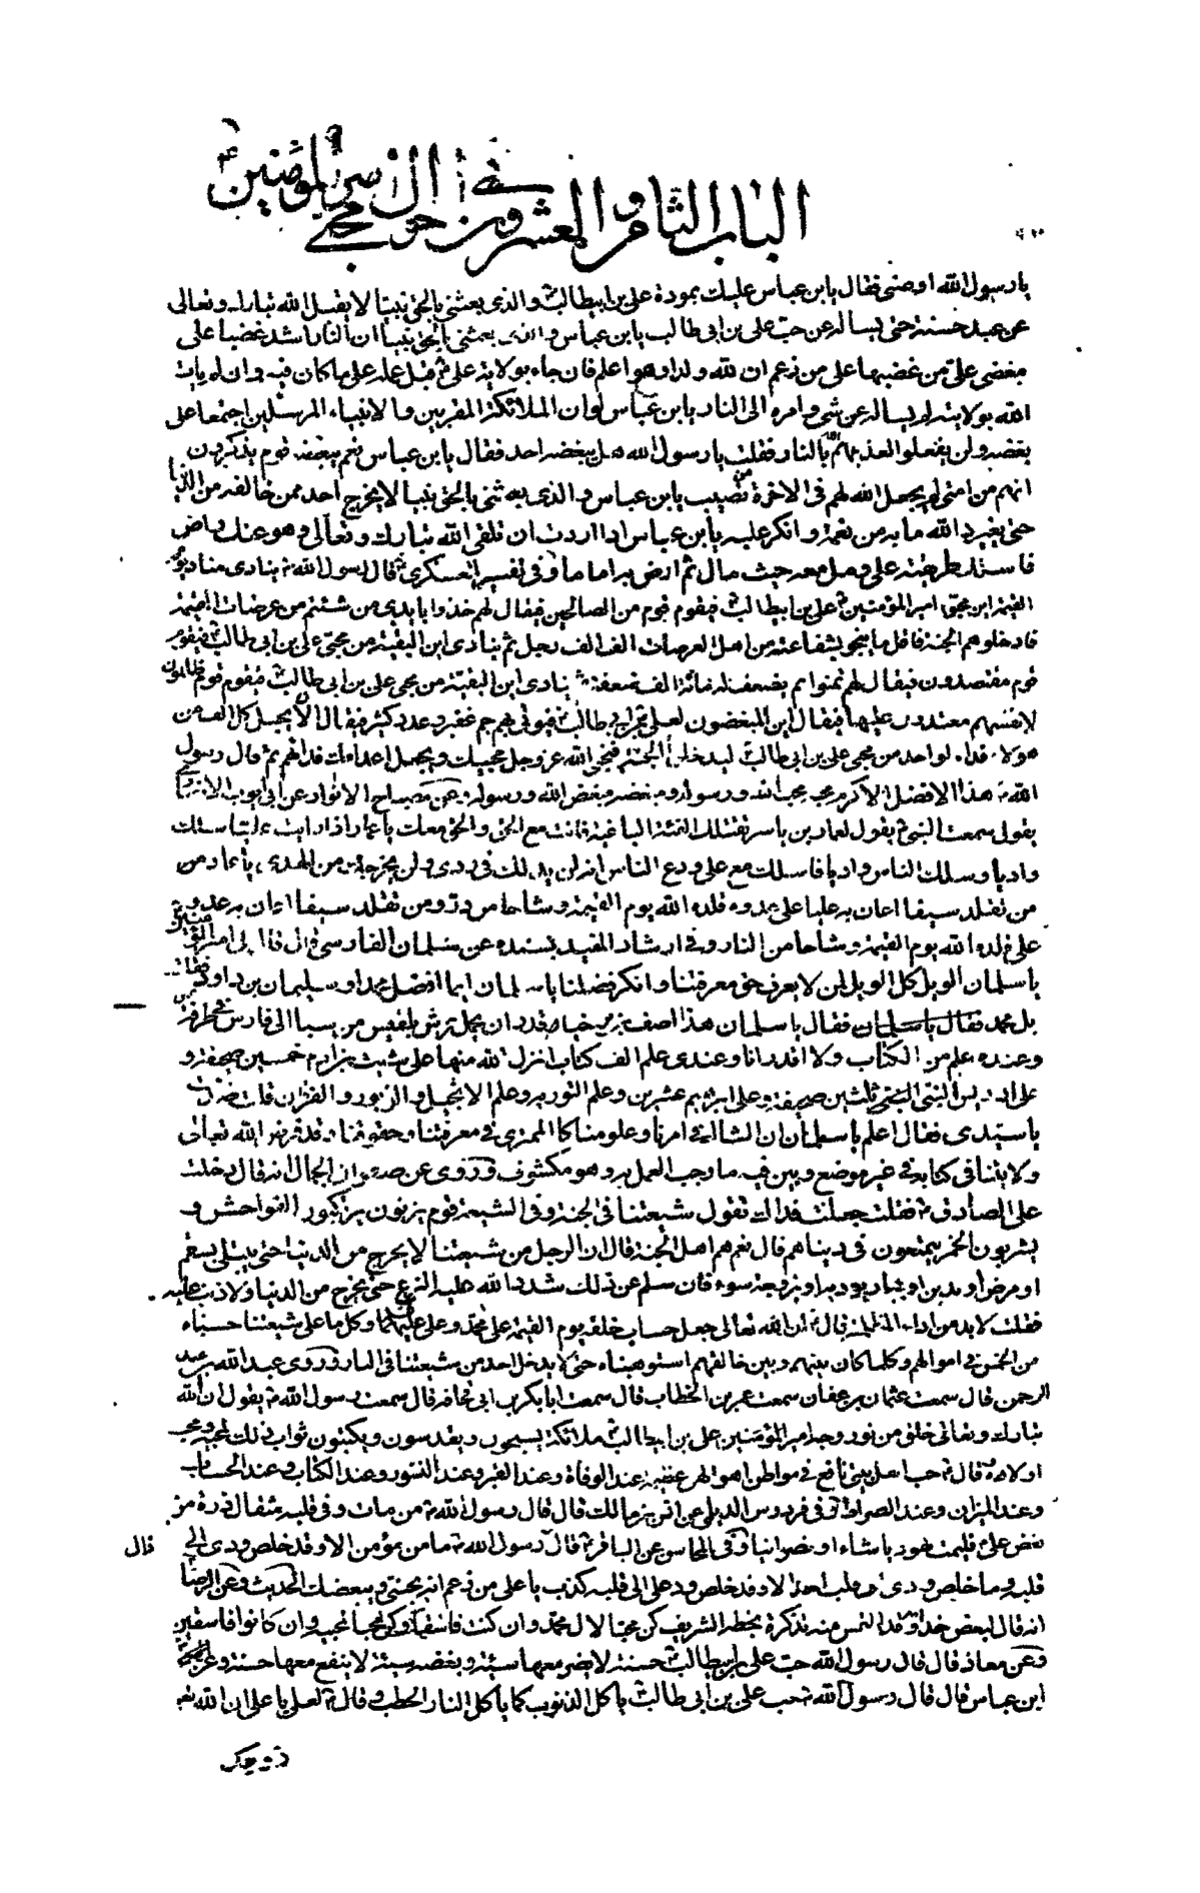 الباب الثامن والعشرون في احوال محبي امير المؤمنين
يا رسول الله اوصني فقال يا بن عباس عليك بمودة علي بن ابيطالب والذي بعثني بالحق نبيا لا يقبل الله تبارك وتعالى
من عبد حسنة حتى يساله عن حب علي بن ابي طالب يا بن عباس والذي بعثني بالحق نبيا ان النار اشد غضبا على
مبغضي علي من غضبها على من زعم ان لله ولدا وهو اعلم فان جاء بولايته على قبل عمله على ما كان فيه وان لم يات
الله بولايته لم يساله عن شئ وامره الى النار يا بن عباس لو ان الملائكة المقربين والانبياء المرسلين اجتمعوا على
بغضه ولن يفعلوا لعذبهم الله بالنار وفقلت يا رسول الله هل يبغضه احد فقال يا بن عباس نعم يبغضه قوم يذكرون
انهم من امتي لم يجعل الله لهم في الاخرة من نصيب يا بن عباس والذي بعثني بالحق نبيا لا يخرج احد ممن خالفه من الدنيا
حتى يغير الله ما به من نعمة وانكر عليه يا بن عباس اذا اردت ان تلقى الله تبارك وتعالى وهو عنك راض
فاسلك طريقة علي ومل معه حيث مال ثم ارض به اماما وفي تفسير العسكري قال رسول الله ينادي مناد يوم
القيمة اين محبو امير المؤمنين علي بن ابيطالب فيقوم قوم من الصالحين فيقال لهم خذوا بايدي من شئتم من عرضات القيمة
فادخلوهم الجنة فاقل ما ينجو بشفاعته من اهل العرصات الف الف رجل ثم ينادي اين البقية من محبي علي بن ابي طالب فيقوم
قوم مقتصدون فيقال لهم تمنوا ثم يضعف له مائة الف ضعف ثم ينادي اين البقية من محبي علي بن ابي طالب فيقوم قوم ظالمون
لانفسهم معتدون عليها فيقال اين المبغضون لعلي بن ابي طالب فيؤتى بهم جم غفير وعدد كثير فيقال الا يجعل كل الف من
هولاء فداء لواحد من محبي علي بن ابي طالب ليدخلوا الجنة فينجي الله عز وجل محبيك ويجعل اعداءك فداهم ثم قال رسول
الله هذا الافضل الاكرم محبه محب الله ورسوله ومبغضه مبغض الله ورسوله وعن مصباح الانوار عن ابي ايوب الانصاري
يقول سمعت النبي يقول لعمار بن ياسر تقتلك الفئة الباغية فانت مع الحق والحق معك يا عمار اذا رايت عليا سلك
واديا وسلك الناس واديا فاسلك مع علي ودع الناس انه لن يدلك في ردى ولن يخرجك من الهدى يا عمار من
من تقلد سيفا اعان به عليا على عدوه قلده الله يوم القيمة وشاحا من در ومن تقلد سيفا اعان به عدو
علي قلده الله يوم القيمة وشاحا من النار وفي ارشاد المفيد بسنده عن سلمان الفارسي قال قال لي امير المؤمنين
يا سلمان الويل كل الويل لمن لا يعرف حق معرفتنا وانكر فضلنا يا سلمان ايما افضل محمد او سليمان بن داود فقلت
بل محمد فقال يا سلمان فقال يا سلمان هذا اصف بن برخيا قدر ان يحمل عرش بلقيس من سبا الى فارس في طرفة
وعنده علم من الكتاب ولا اقدر انا وعندي علم الف كتاب انزل الله منها على شيث بن ادم خمسين صحيفة و
على ادريس النبي ثلثين صحيفة وعلى ابراهيم عشرين وعلم التورية وعلم الانجيل والزبور والفرقان قلت صدقت
يا سيدي فقال اعلم يا سلمان ان الشاك في امرنا وعلومنا كالممتري في معرفتنا وحقوقنا وقد فرض الله تعالى
ولايتنا في كتابه في غير موضع وبين فيه ما وجب العمل به وهو مكشوف وروى عن صفوان الجمال انه قال دخلت
على الصادق فقلت جعلت فداك تقول شيعتنا في الجنة وفي الشيعة قوم يزنون يرتكبون الفواحش و
يشربون الخمر يتمتعون في دنياهم قال نعم هم اهل الجنة قال ان الرجل من شيعتنا لا يخرج من الدنيا حتى يبتلى بسقم
او مرض او بدين او بجار يوذيه او بزوجة سوء فان سلم عن ذلك شدد الله عليه النزع حتى يخرج من الدنيا ولا ذنب عليه
فقلت لابد من اداء المظالم قال ان الله تعالى جعل حساب خلقه يوم القيمة على محمد وعلي عليهما وكل ما على شيعتنا حسبناه
من الخمس في اموالهم وكلما كان بينهم وبين خالقهم استوهبناه حتى لا يدخل احد من شيعتنا في النار وروى عبد الله بن عبد
الرحمن قال سمعت عثمان بن عفان سمعت عمر بن الخطاب قال سمعت ابا بكر بن ابي قحافه قال سمعت رسول الله يقول ان الله
تبارك وتعالى خلق من نور وجه امير المؤمنين علي بن ابيطالب ملائكة يسبحون ويقدسون ويكتبون ثواب ذلك لمحبيه ومحبي
اولاده قال حب اهل بيتي نافع في مواطن اهوالهن عظيمة عند الوفاة وعند القبر وعند النشور وعند الكتاب وعند الحساب
وعند الميزان وعند الصراط وفي فردوس الديلمي عن انس بن مالك قال قال رسول الله من مات وفي قلبه مثقال ذرة من
بغض علي فليمت يهوديا شاء او نصرانيا وفي المحاسن عن الباقر قال رسول الله ما من مؤمن الا وقد خلص ودي الى قال
قلبه وما خلص ودي الى قلب احد الا وقد خلص ود علي الى قلبه كذب يا علي من زعم انه يحبني ويبغضك الحديث وعن الرضا
انه قال لبعض خدامه وقد التمس منه تذكرة بخطه الشريف كن محبا لال محمد وان كنت فاسقا وكن محبا لمحبيهم وان كانوا فاسقين
وعن معاذ قال قال رسول الله حب علي بن ابيطالب حسنة لا يضر معها سيئة وبغضه سيئة لا ينفع معها حسنة وعن
ابن عباس قال قال رسول الله حب علي بن ابي طالب ياكل الذنوب كما ياكل النار الحطب وقال لعلي يا علي ان الله
زوجك